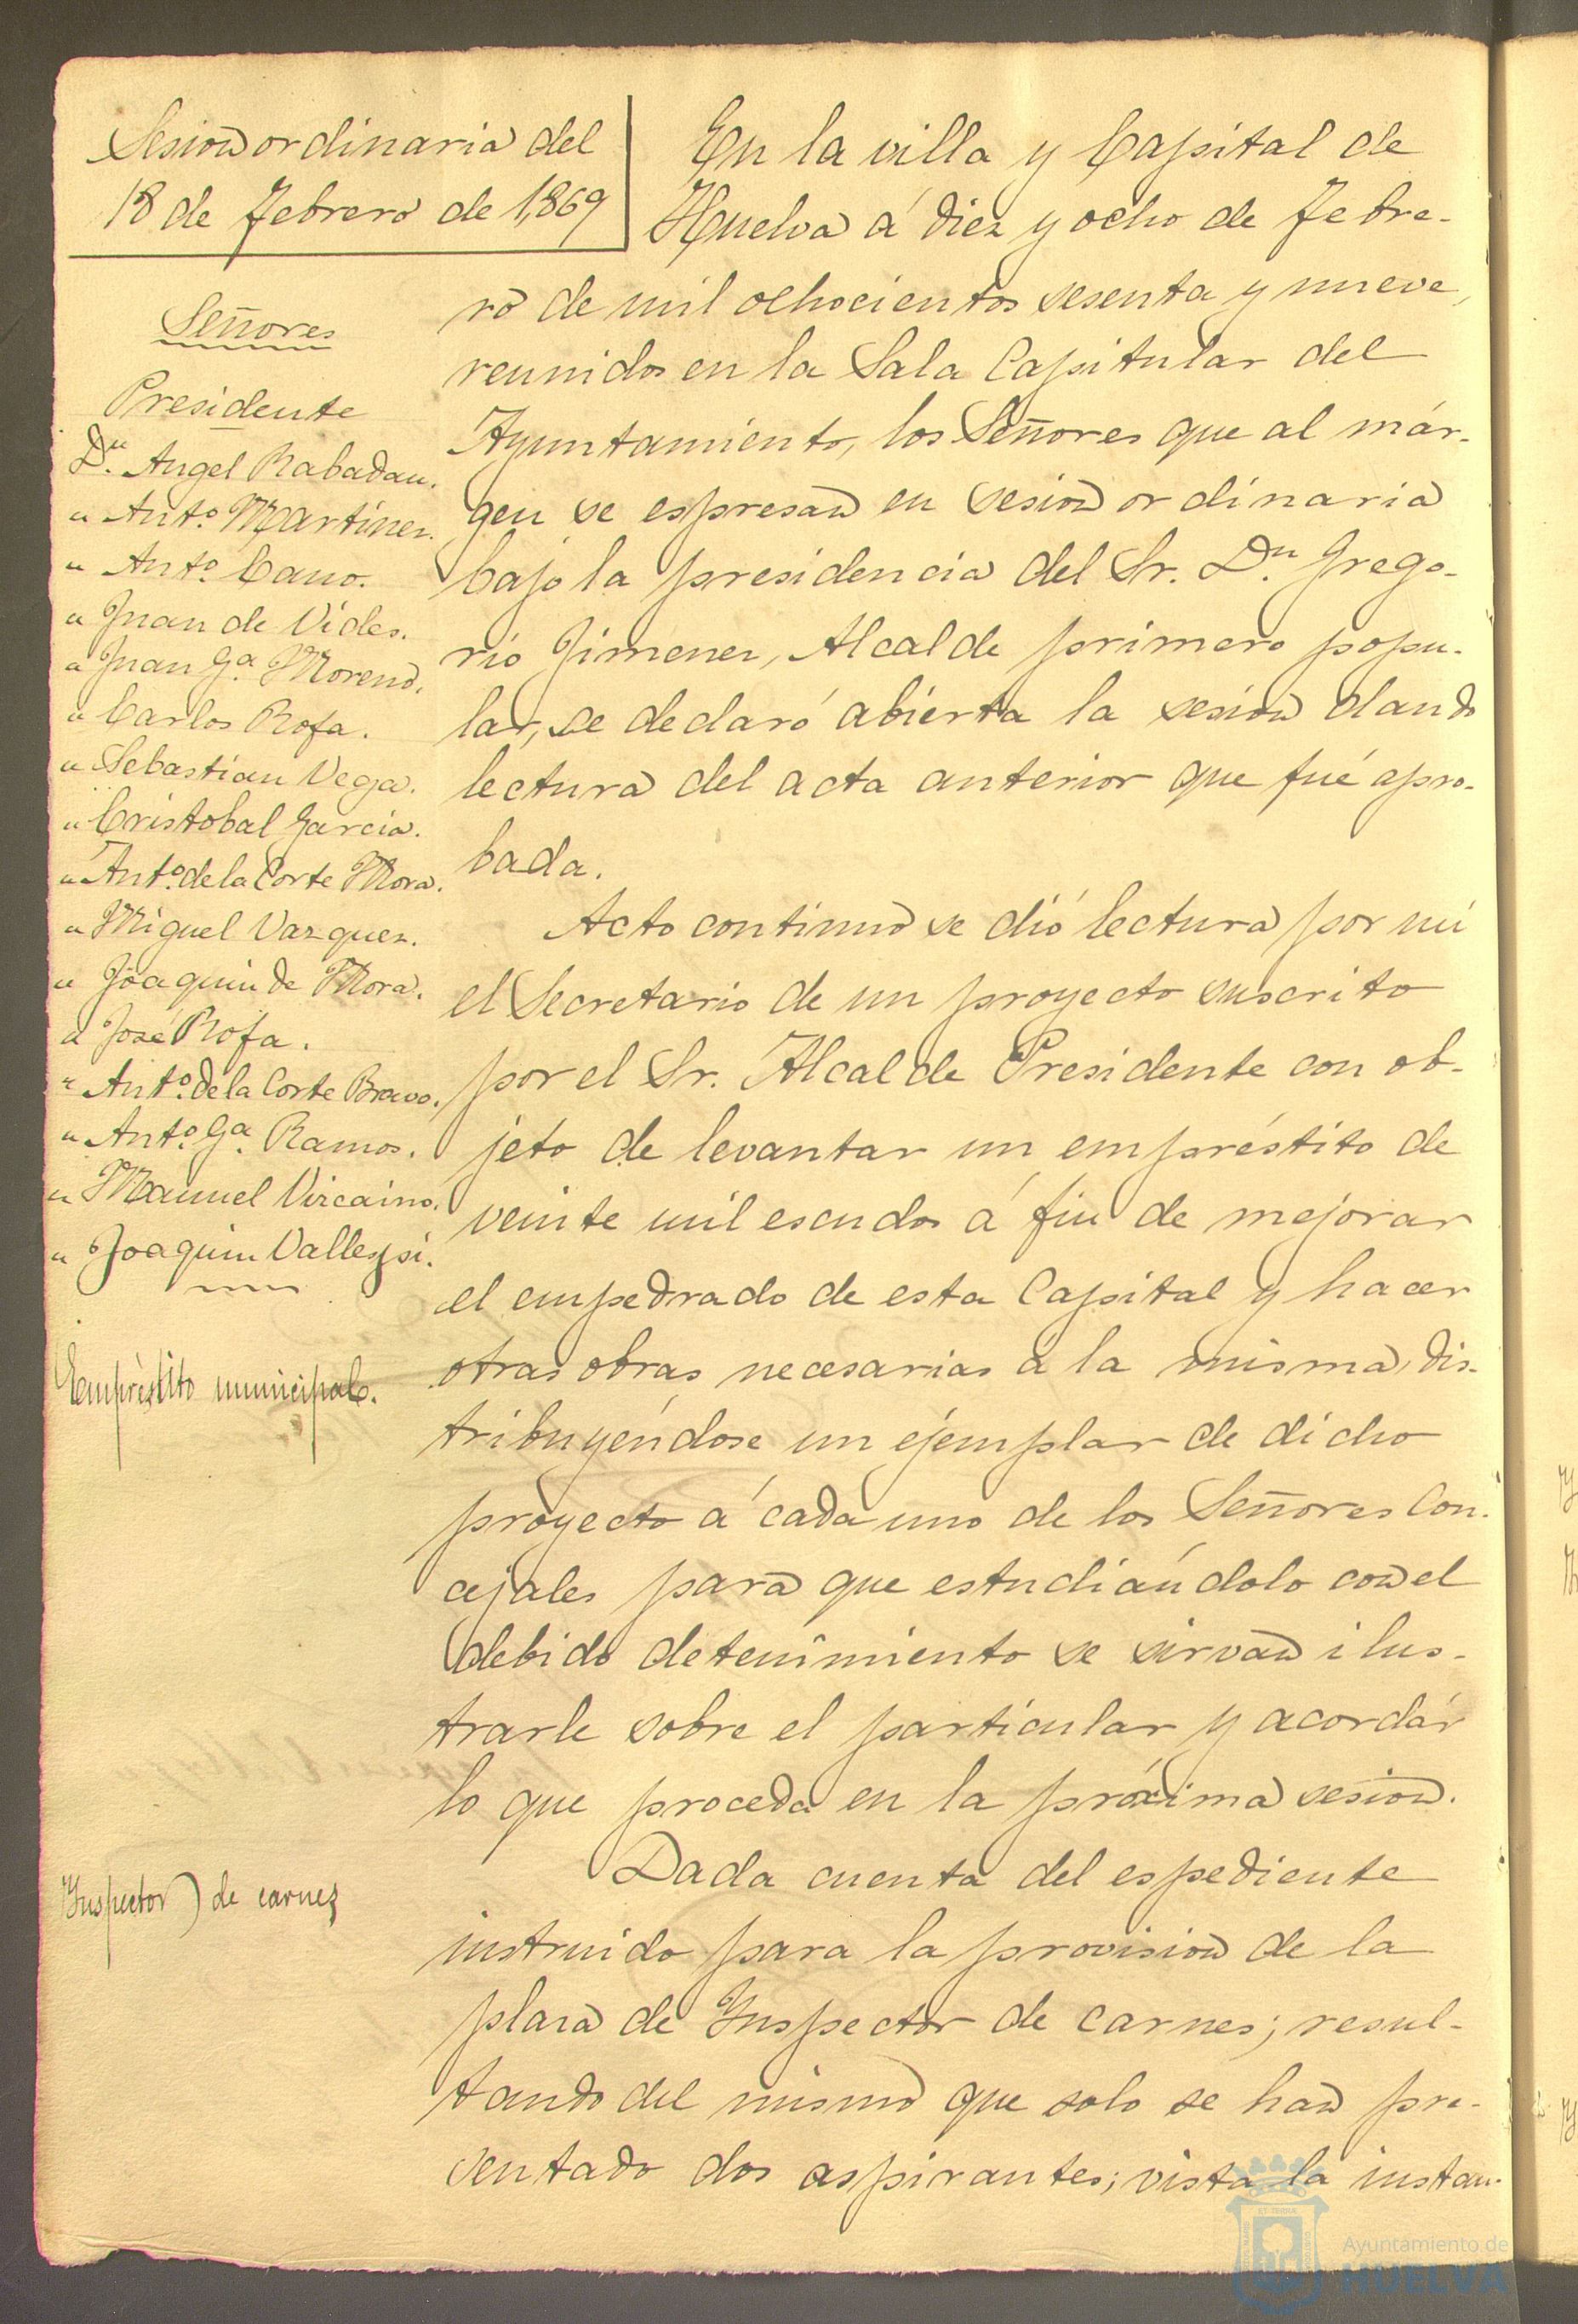 Sesion ordinaria del
18 de Febrero de 1,869
Señores
Presidente
Dn. Angel Rabadan.
" Anto. Martinez.
" Anto. Cano.
" Juan de Vides.
" Juan Ga. Moreno.
" Carlos Rofa.
" Sebastian Vega.
" Cristobal Garcia.
" Anto. de la Corte Mora.
" Miguel Vazquez.
" Joaquin de Mora.
" José Rofa.
" Anto. de la Corte Bravo.
" Anto. Ga. Ramos.
" Manuel Vizcaino.
" Joaquin Vallespi.
Empréstito municipal.
Inspector de carnes
En la villa y Capital de
Huelva á diez y ocho de Febre-
ro de mil ochocientos sesenta y nueve,
reunidos en la Sala Capitular del
Ayuntamiento, los Señores que al már-
gen se espresan en sesion ordinaria
bajo la presidencia del Sr. Dn. Grego-
rio Jimenez, Alcalde primero popu-
lar, se declaró abierta la sesion dando
lectura del acta anterior que fué apro-
bada.
Acto continuo se dió lectura por mi
el Secretario de un proyecto suscrito
por el Sr. Alcalde Presidente con ob-
jeto de levantar un empréstito de
veinte mil escudos á fin de mejorar
el empedrado de esta Capital y hacer
otras obras necesarias á la misma, dis-
tribuyéndose un ejemplar de dicho
proyecto á cada uno de los Señores Con-
cejales para que estudiándolo con el
debido detenimiento se sirvan ilus-
trarle sobre el particular y acordár
lo que proceda en la próxima sesion.
Dada cuenta del espediente
instruido para la provision de la
plaza de Inspector de carnes; resul-
tando del mismo que solo se han pre-
sentado dos aspirantes; vista la instan-
Ayuntamiento de
HUELVA